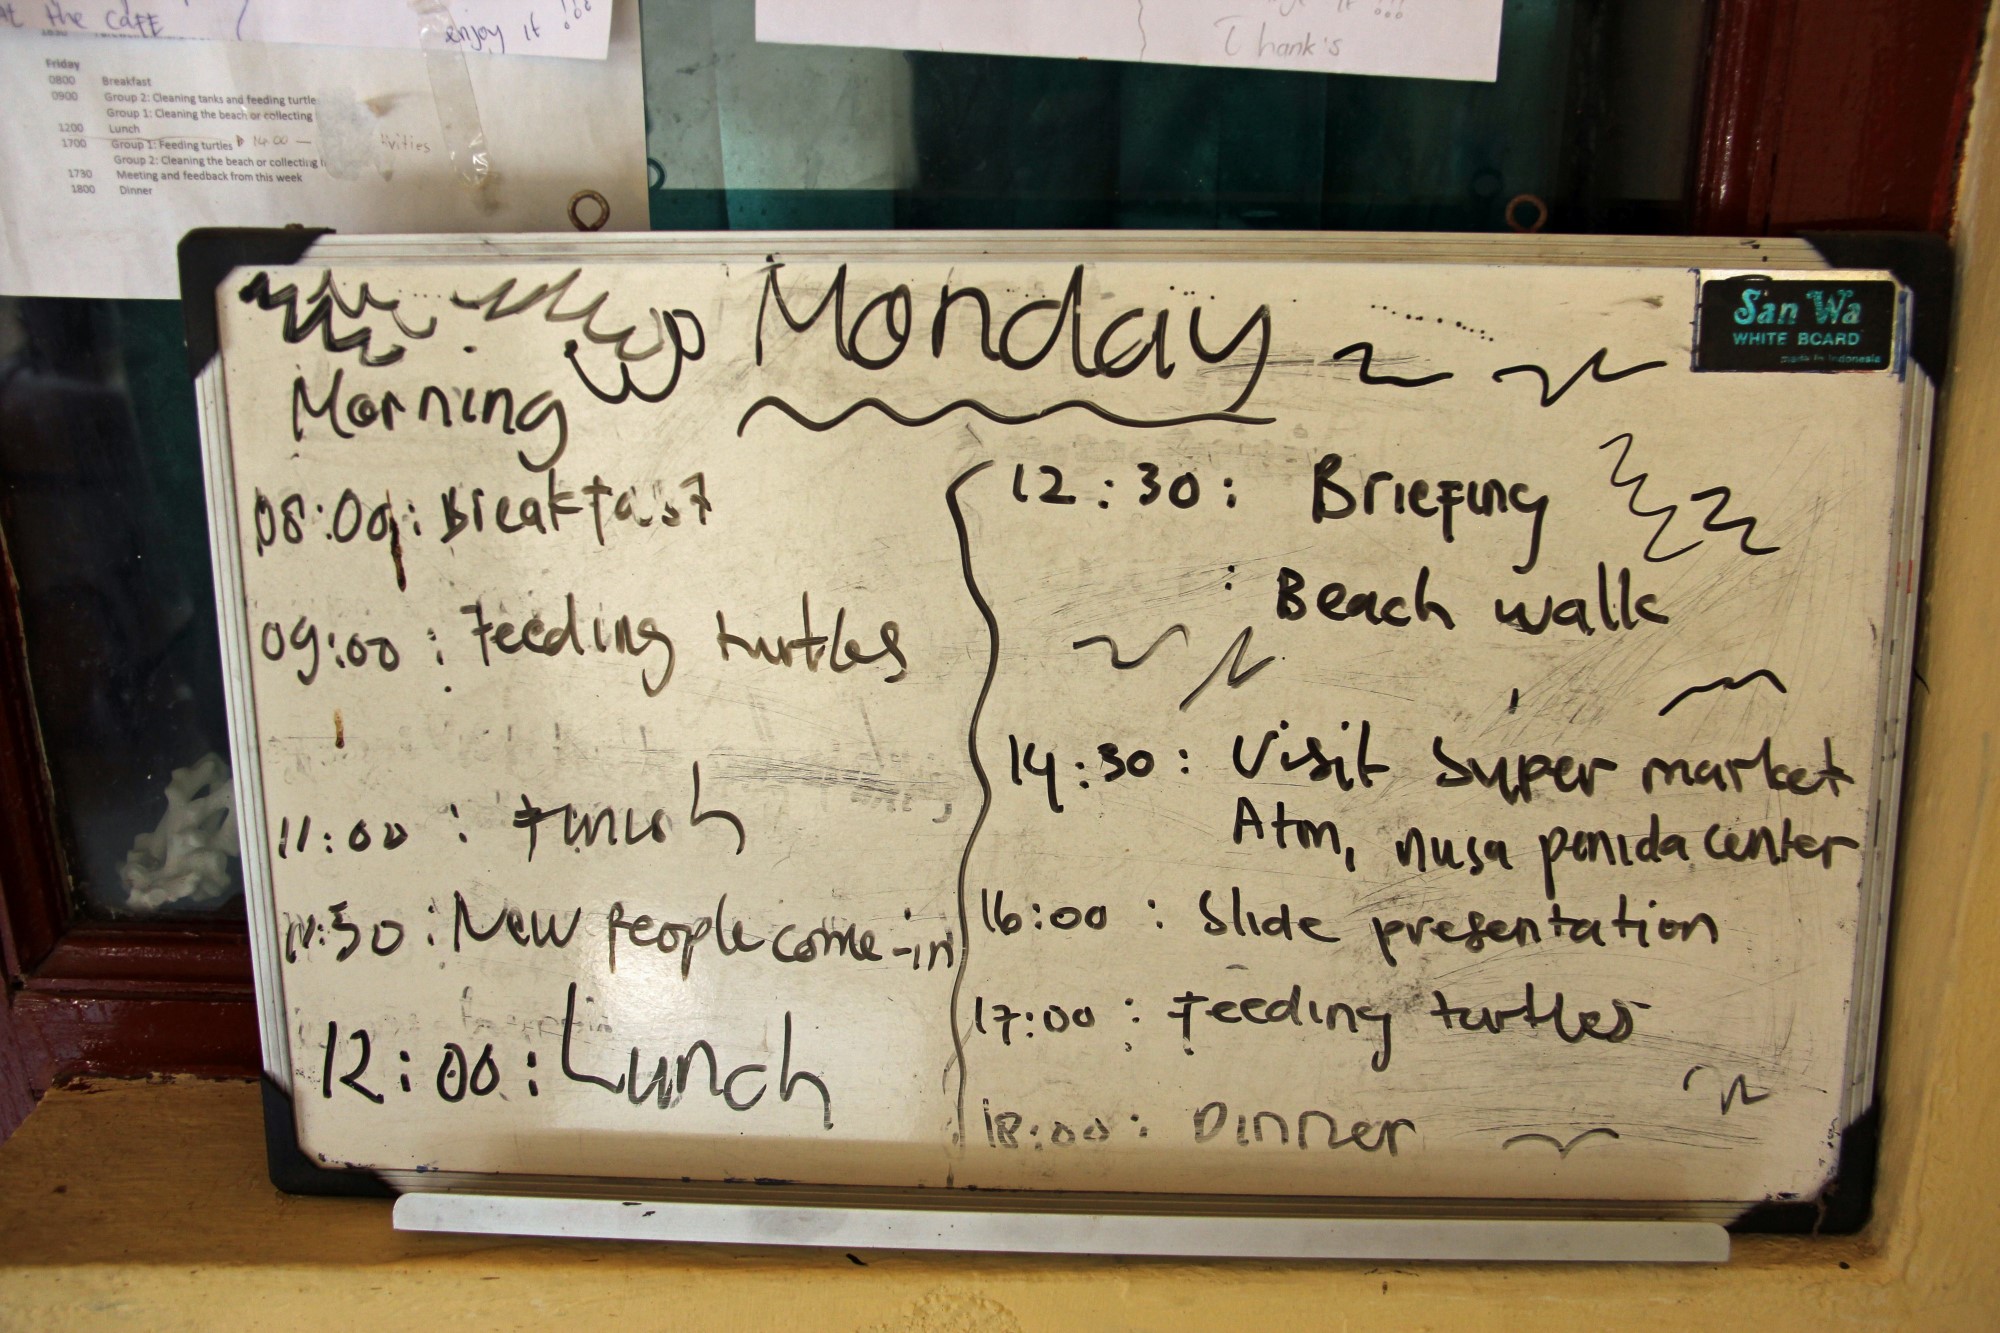 At the CAFE
enjoy it !!!
Thank's
Friday
0800 Breakfast
0900 Group 2: Cleaning tanks and feeding turtle
Group 1: Cleaning the beach or collecting
1200 Lunch
1700 Group 1: Feeding turtles 14.00 —
Group 2: Cleaning the beach or collecting
1730 Meeting and feedback from this week
1800 Dinner
Monday
San Wa
WHITE BOARD
made in Indonesia
Morning
08:00: Breakfast
09:00: Feeding turtles
11:00: Finish
11:30: New people come-in
12:00: Lunch
12:30: Briefing
: Beach walk
14:30: Visit Super market
Atm, nusa penida center
16:00: Slide presentation
17:00: Feeding turtles
18:00: Dinner